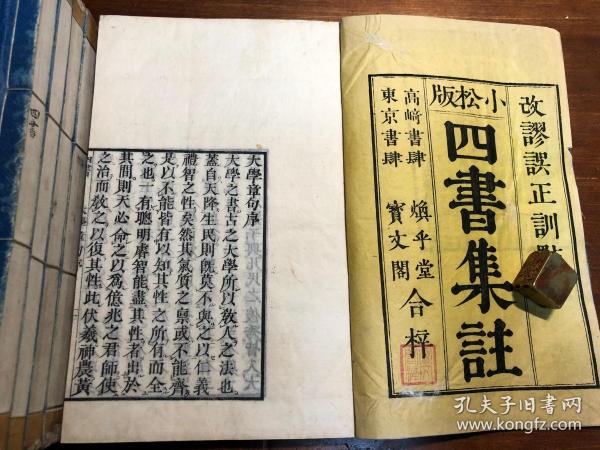 改謬誤正訓點
小松版
四書集註
高崎書肆 煥乎堂
東京書肆 寶文閣
合梓
大學章句序
大學之書古之大學所以教人之法也
蓋自天降生民則旣莫不與之以仁義
禮智之性矣然其氣質之稟或不能齊
是以不能皆有以知其性之所有而全
之也一有聰明睿智能盡其性者出於
其閒則天必命之以爲億兆之君師使
之治而敎之以復其性此伏羲神農黃
四書
孔夫子旧书网
kongfz.com